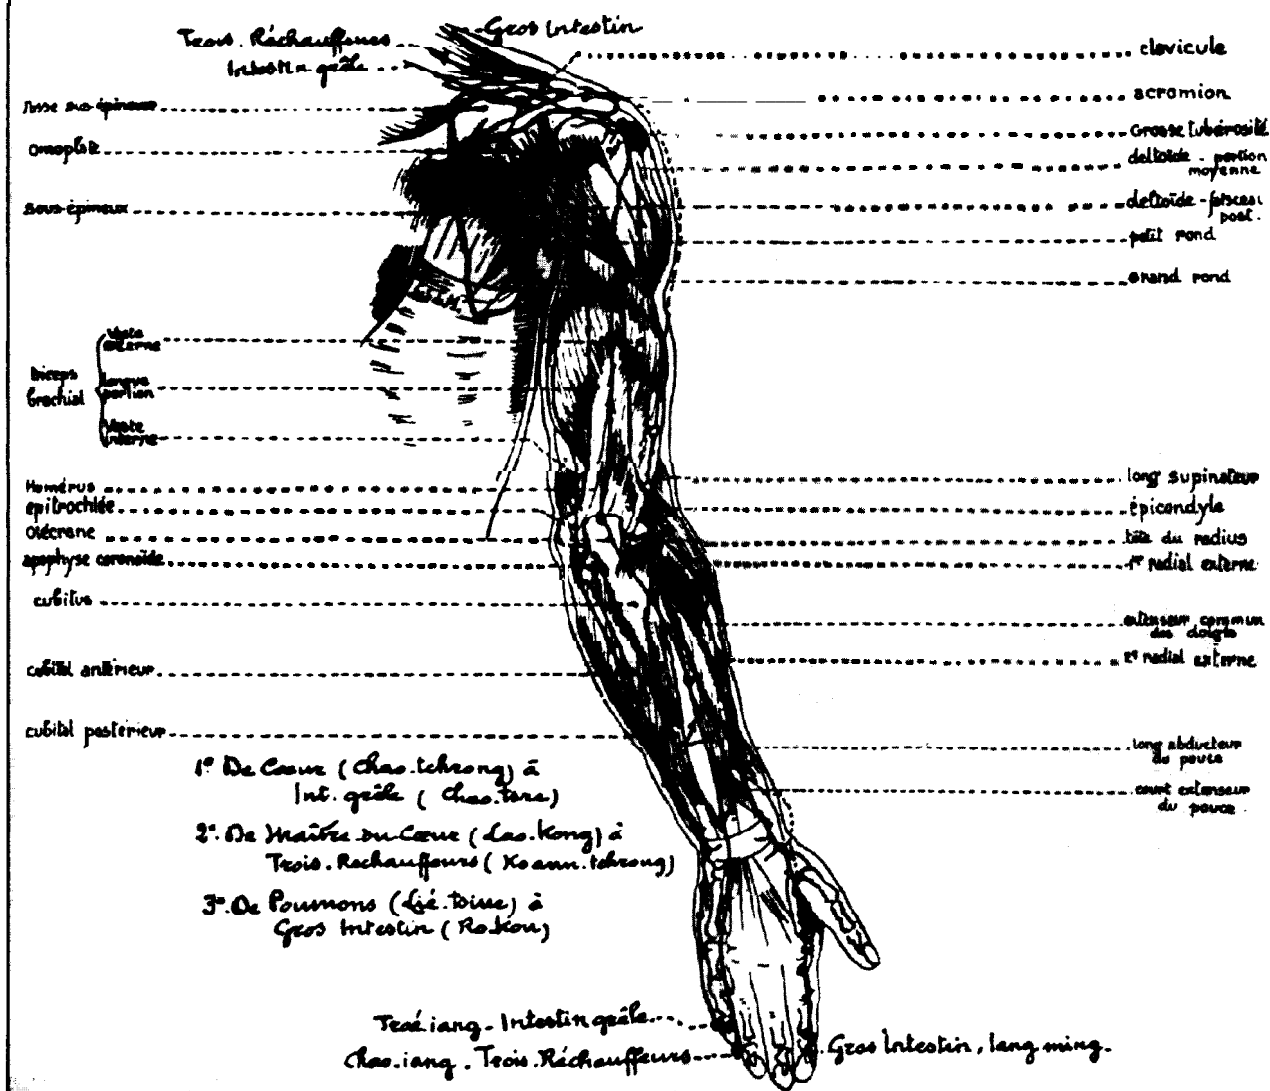 Gros Intestin
Trois. Réchauffeurs
Intestin grêle
fosse sus-épineuse
omoplate
sous-épineux
Vaste
externe
biceps
brachial
longue
portion
Vaste
interne
Humérus
epitrochlée
olécrane
apophyse coronoïde
cubitus
cubital antérieur
cubital postérieur
clavicule
acromion
Grosse tubérosité
deltoïde - portion
moyenne
deltoïde - faisceau
post.
petit rond
grand rond
long supinateur
épicondyle
tête du radius
1er radial externe
extenseur commun
des doigts
2e radial externe
long abducteur
du pouce
court extenseur
du pouce
1º De Cœur (Chao.tchrong) à
Int. grêle (Chao.tsre)
2º. De Maître du Cœur (Lao.Kong) à
Trois. Rechauffeurs (Koann.tchrong)
3º. De Poumons (Lié.tsiue) à
Gros Intestin (Ro.kou)
Traé iang - Intestin grêle
Chao.iang - Trois.Réchauffeurs
Gros Intestin, Iang ming.